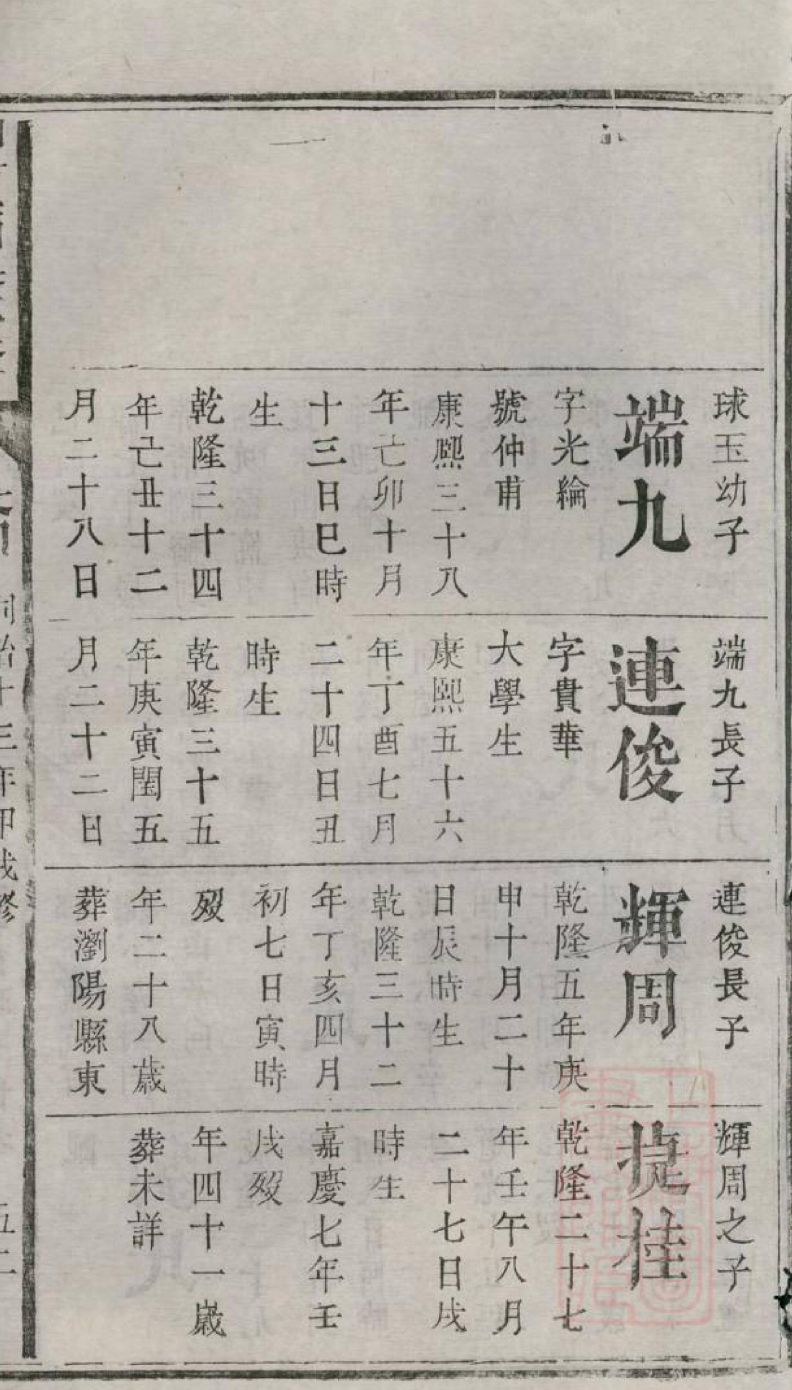 球玉幼子
端九
字光綸
號仲甫
康熙三十八
年亡卯十月
十三日巳時
生
乾隆三十四
年亡丑十二
月二十八日
端九長子
連俊
字貴華
大學生
康熙五十六
年丁酉七月
二十四日丑
時生
乾隆三十五
年庚寅閏五
月二十二日
連俊長子
輝周
乾隆五年庚
申十月二十
日辰時生
乾隆三十二
年丁亥四月
初七日寅時
歿
年二十八歲
葬瀏陽縣東
輝周之子
捷桂
乾隆二十七
年壬午八月
二十七日戌
時生
嘉慶七年壬
戌歿
年四十一歲
葬未詳
同治十三年甲戌修